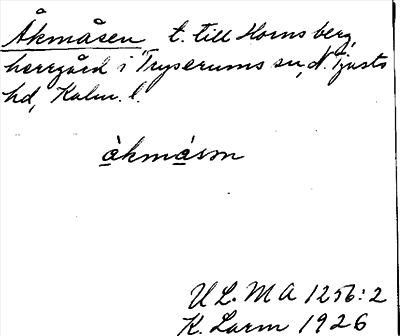 Åkmåsen t. till Hornsberg,
herrgård i Tryserums sn, N. Tjusts
hd, Kalm. l.
àkmásm
ULMA 1256:2
K. Larm 1926